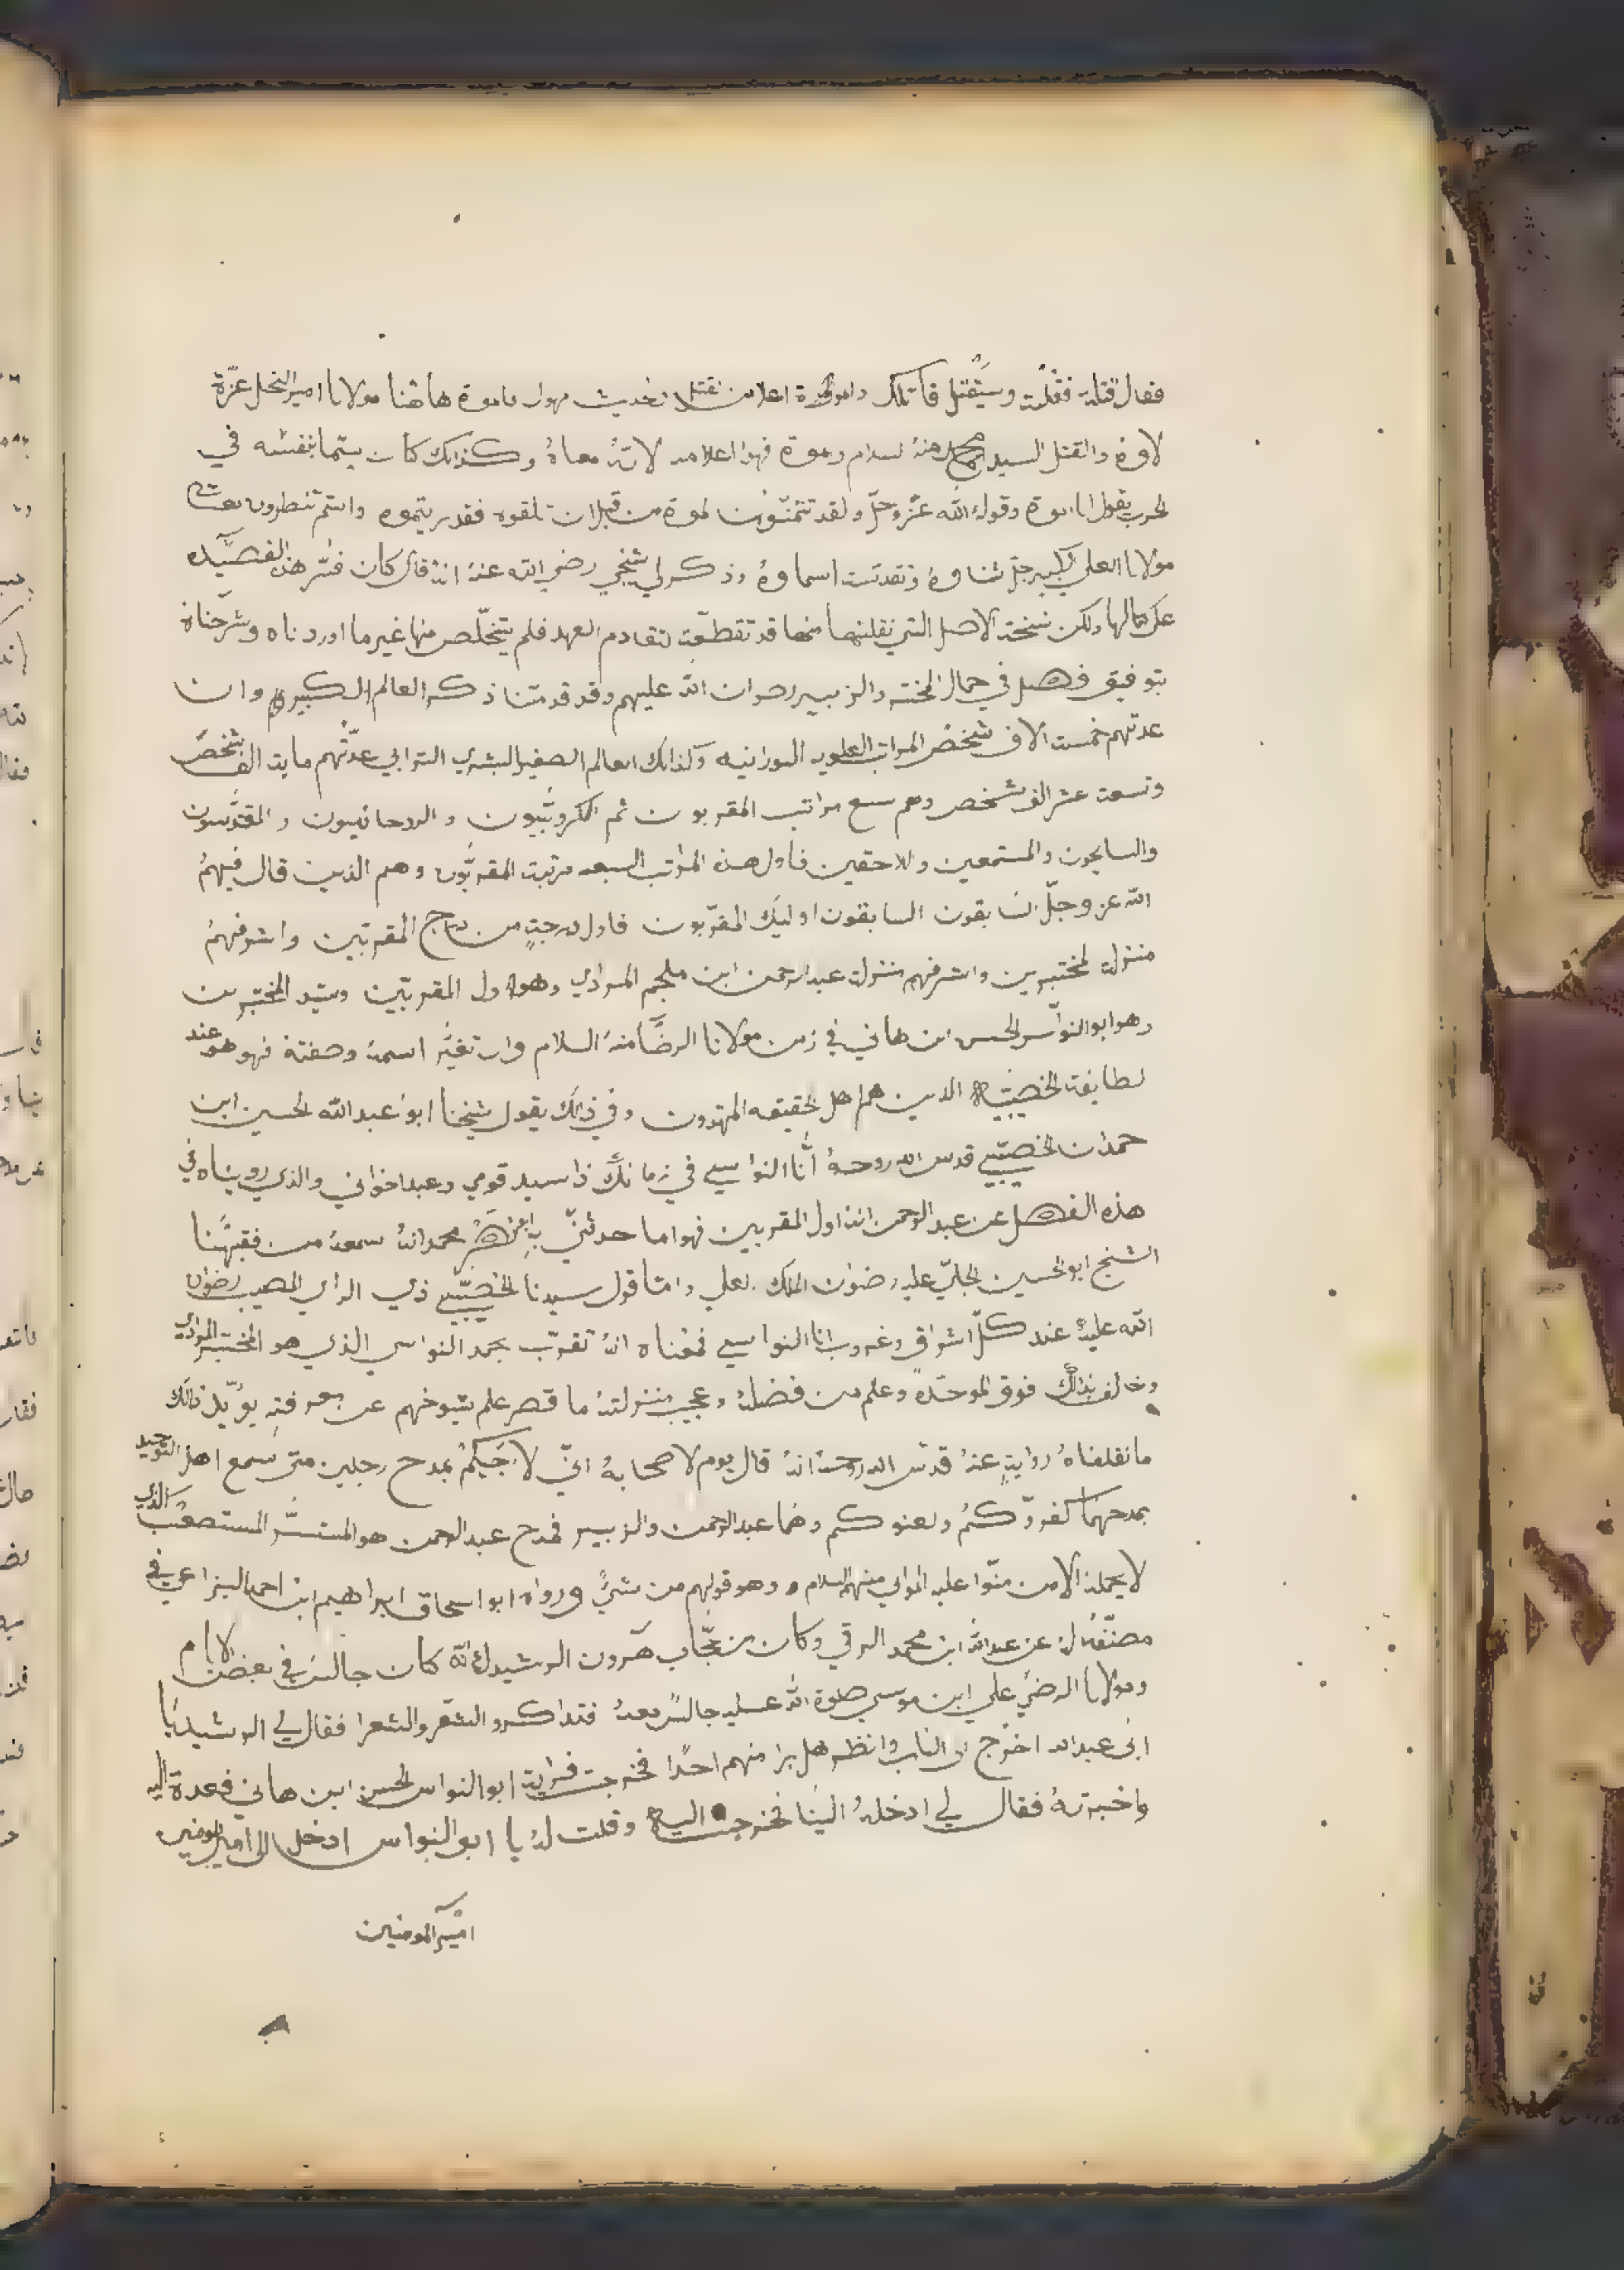 فقال قتلة فقلت وسيقتل قاتلك والموت اعلا من القتل بحديث مهول فالموة هاهنا مولانا امير النحل عزّة
لاوة والقتل السيد محمد منهُ السلام وموة فهوا اعلامه لانهُ معناهُ وكذالك كان يتما بنفسه في
الحرب يقول انا الموة وقوله الله عزّوجلّ ولقد تتمنّون الموة من قبل ان تلقوه فقد ريتموه وانتم تنظرون
مولانا العلي الكبير جلّ ثناوهُ وتقدّست اسماوهُ وذكر لي شيخي رضي الله عنهُ انهُ قال كان فسّر هذه القصيّده
على كمالها ولكن نسخة الاصل التي نقلتها منها قد تقطعت لتقادم العهد فلم يتخلّص منها غير ما اوردناه وشرحناهُ
بتوفيق فصل في حمال المحنه والزبير رضوان الله عليهم وقد قدمّنا ذكر العالم الكبير وان
عدّتهم خمست الاف شخص المراتب العلويه النورانيه وكذالك العالم الصغير البشري الترابي عدّتهم ماية الف شخص
وتسعت عشر الف شخص وهم سبع مراتب المقربون ثم الكروبّيون والروحانيون والمقدّسون
والسايحون والمستمعين واللاحقين فاول هذه المراتب السبعه مرتبة المقربّون وهم الذين قال فيهمُ
الله عز وجلّ السابقون السابقون اوليك المقرّبون فاول درجةٍ من درج المقربّين واشرفهمُ
منزلة المختبرين واشرفهم منزلة عبد الرحمن ابن ملجم المرادي وهو اول المقربّين وسيّد المختبرين
وهوا ابو النوّاس الحسن ابن هاني في زمن مولانا الرضّا منهُ السلام وان تغيّر اسمهُ وصفتهُ فهو هو عند
لطايفة الخصيبّيه الدين هم اهل الحقيقه المهتدون وفي ذالك يقول شيخنا ابو عبد الله الحسين ابن
حمدان الخصيبّي قدس الله روحهُ انا النواسي في زمانك ذا سيد قومي وعبد اخواني والذي رويناه في
هذه الفصل عن عبد الرحمن انهُ اول المقربين فهوا ما حدثنيّ به محمد انهُ سمعهُ من فقيهنا
الشيخ ابو الحسين الجليّ عليه رضوان الملك العلي واما قول سيدنا الخصيّبي ذي الراي المصيب رضوان
الله عليهُ عند كلّ اشراق وغروب انا النواسي فمعناه انهُ تقرّب بحمد النواسي الذي هو المختبر المرادي
وخالف بذالك فوق الموحّدة وعلم من فضلهُ وعجيب منزلتهُ ما قصر علم شيوخهم عن معرفته يوّيد ذالك
ما نقلناهُ روايةٍ عنهُ قدّس الله روحهُ انهُ قال يوم لاصحابهُ انيّ لاجيكمُ بمدح رجلين متى سمع اهل التوحيد
بمدحهما كفروّكمُ ولعنوكم وهما عبد الرحمن والزبير فمدح عبد الرحمن هو السرّ المستصعب الذي
لا يحمله الا من منّوا عليه الموالي منهم السلام وهو قولهم من شيءٍ ورواه ابو اسحاق ابراهيم ابن احمد
مصنّفهُ لهُ عن عبد الله ابن محمد البرقي وكان من حجّاب هرون الرشيد لانهُ كان جالس في بعض الايام
ومولانا الرضيّ علي ابن موسى صلوة الله عليه جالسٌ معهُ فتذاكرو الشعر والشعرا فقال لي الرشيد يا
ابي عبد الله اخرج الى الباب وانظر هل ترا منهم احدًا فخرجت فرايت ابو النواس الحسن ابن هاني فعدة اليه
واخبرتهُ فقال لي ادخلهُ الينا فخرجت اليه وقلت لهُ يا ابو النواس ادخل الى امير المومنين
امير المومنين